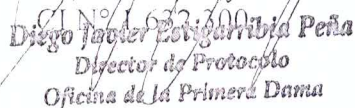 Diego Javier Estigarribia Peña
Director de Protocolo
Oficina de la Primera Dama